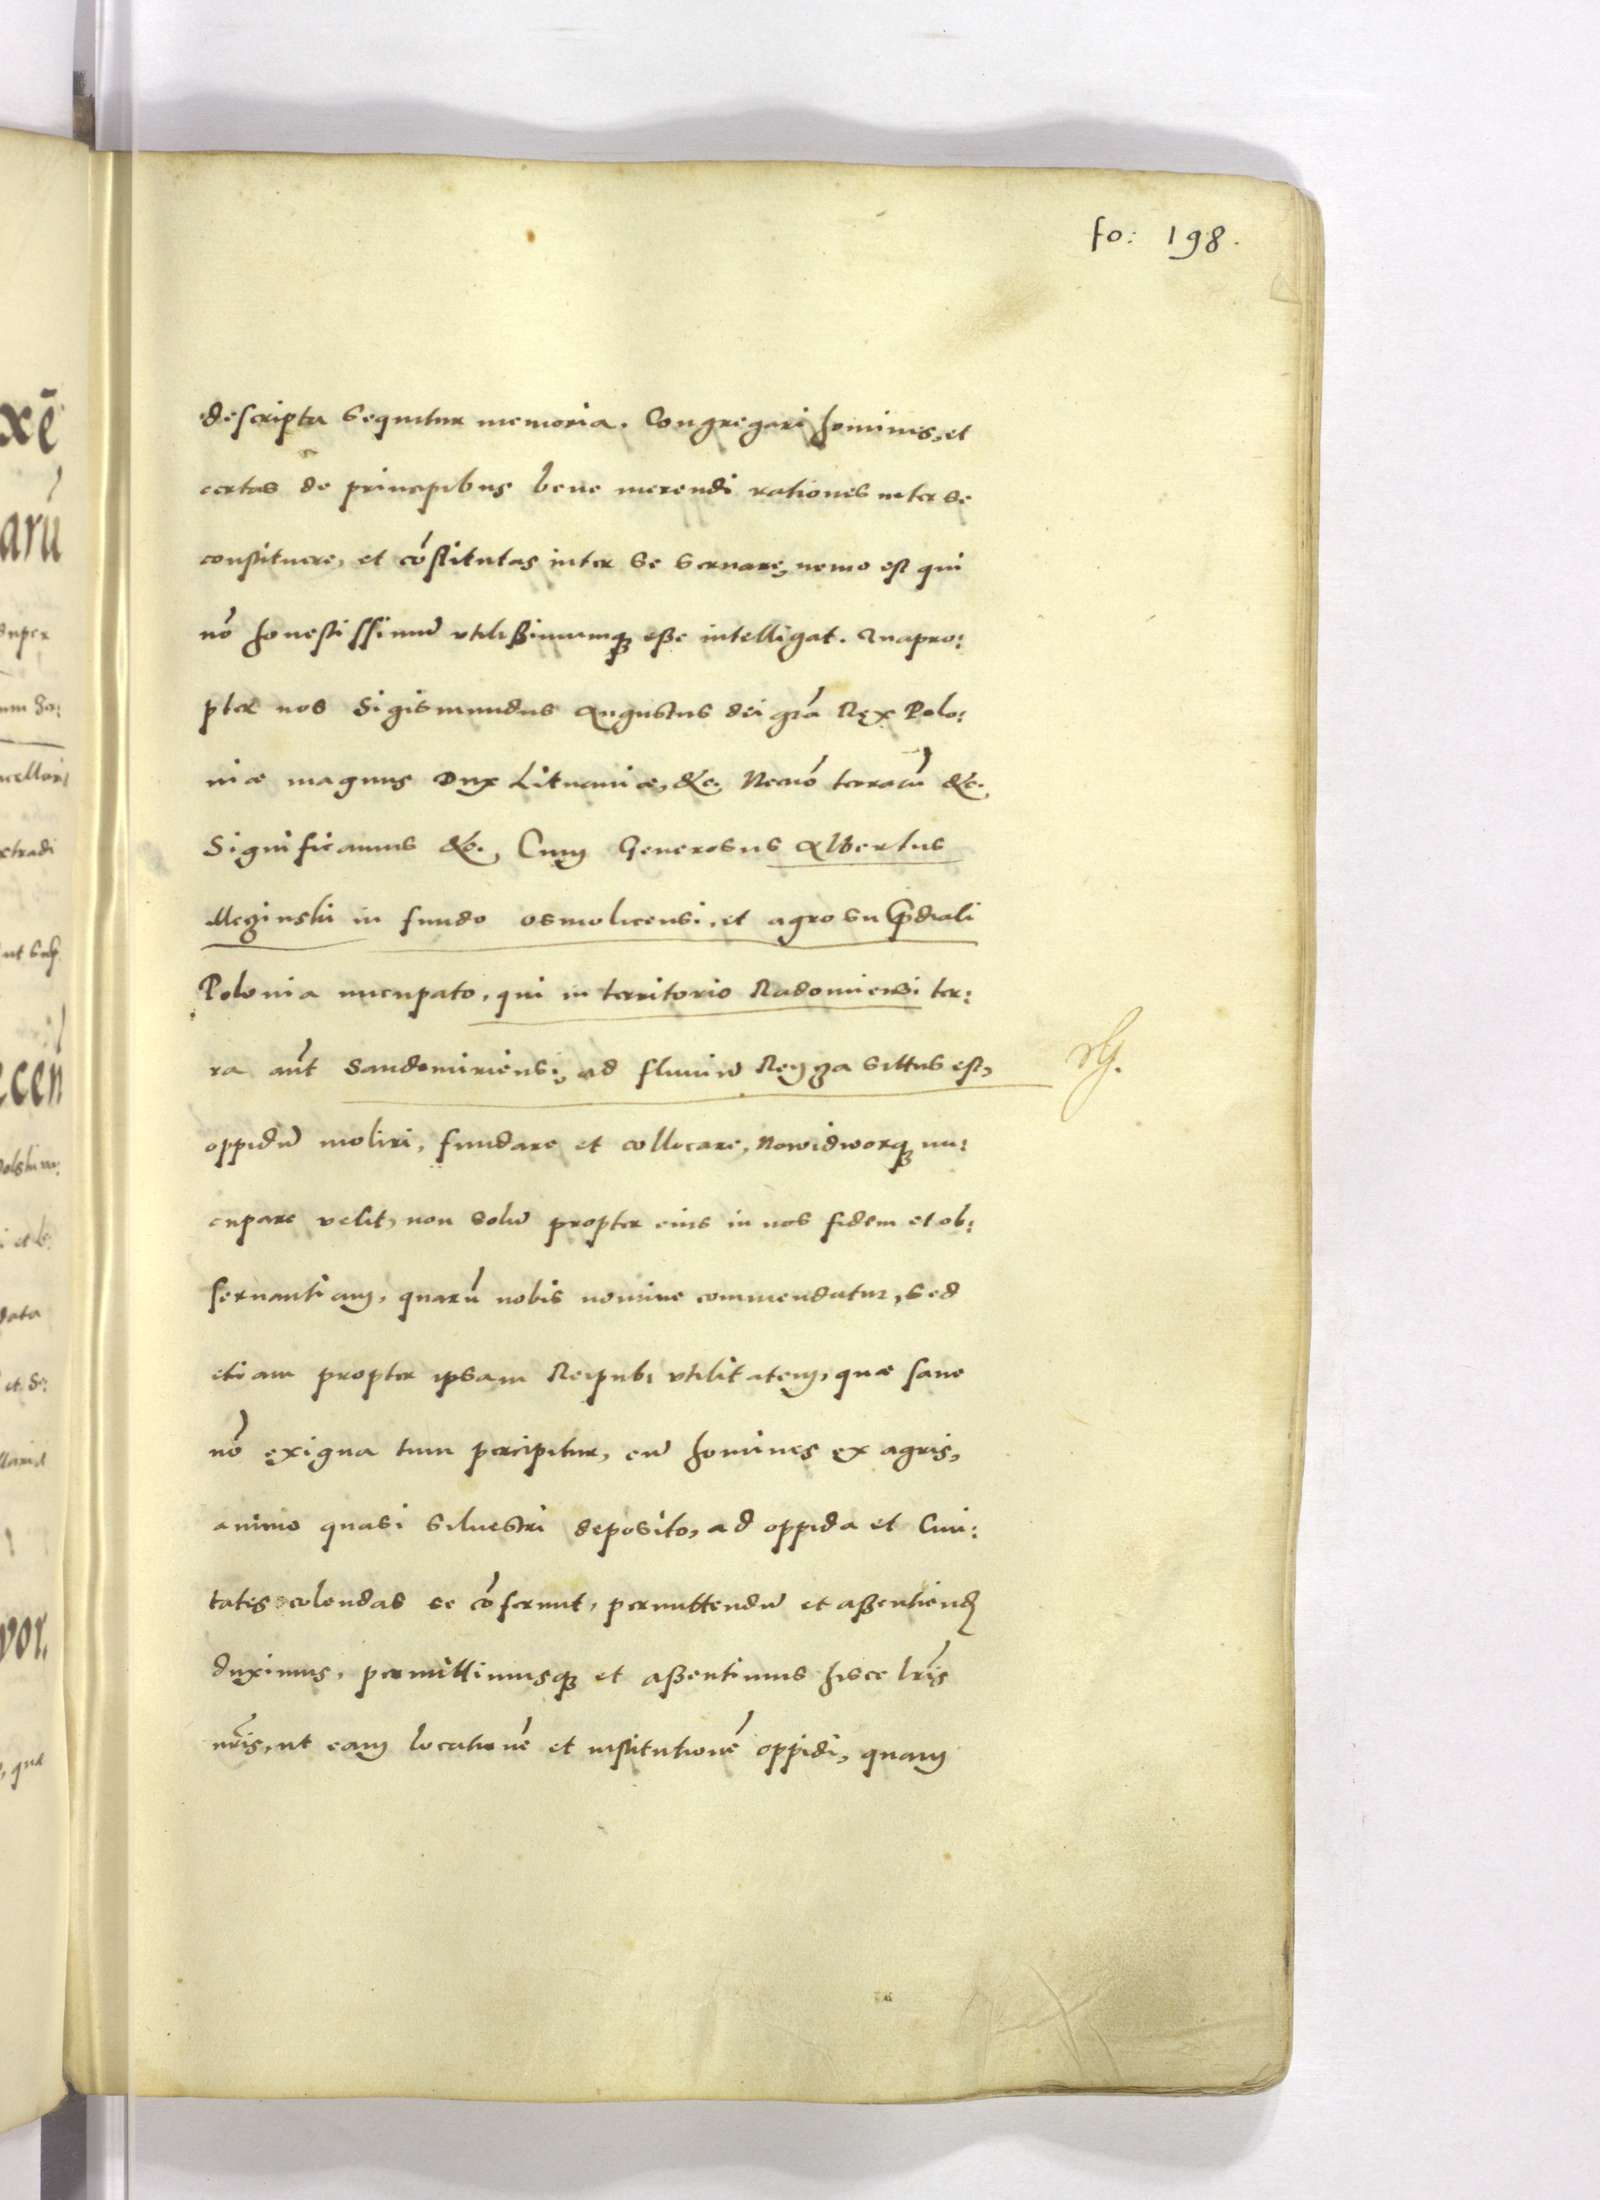 fo: 198.
descripta sequitur memoria. Congregari homines, et
certas de principibus bene merendi rationes inter se
constituere, et cõstitutas inter se seruare, nemo est qui
nõ honestissimũ vtilißimumq; eße intelligat. Quapro:
pter nos Sigismundus Augustus dei grã Rex Polo:
niæ magnus Dux Lituaniæ, &c. Necnõ terrarũ &c.
Significamus &c. Cum Generosus Albertus
in fundo osmolicensi, et agro suo p̃diali
Polonia nucupato, qui in territorio Radomiensi ter:
ra aũt Sandomiriensi, ad fluuiũ Rezga sittus est,
oppidũ moliri, fundare et collocare, Nowidworq; nu:
cupare velit, non solũ propter eius in nos fidem et ob:
seruantiam, quarũ nobis nomine commendatur, sed
etiam propter ipsam Reipub: vtilitatem, quæ sane
nõ exigua tum percipitur, cũ homines ex agris,
animo quasi siluestri deposito, ad oppida et Ciui:
tates colendas se cõferunt, permittendũ et aßentiend
duximus, permittimusq; et aßentimus hisce lr̃is
nr̃is, ut eam locationẽ et institutionẽ oppidi, quam
xẽ
arũ